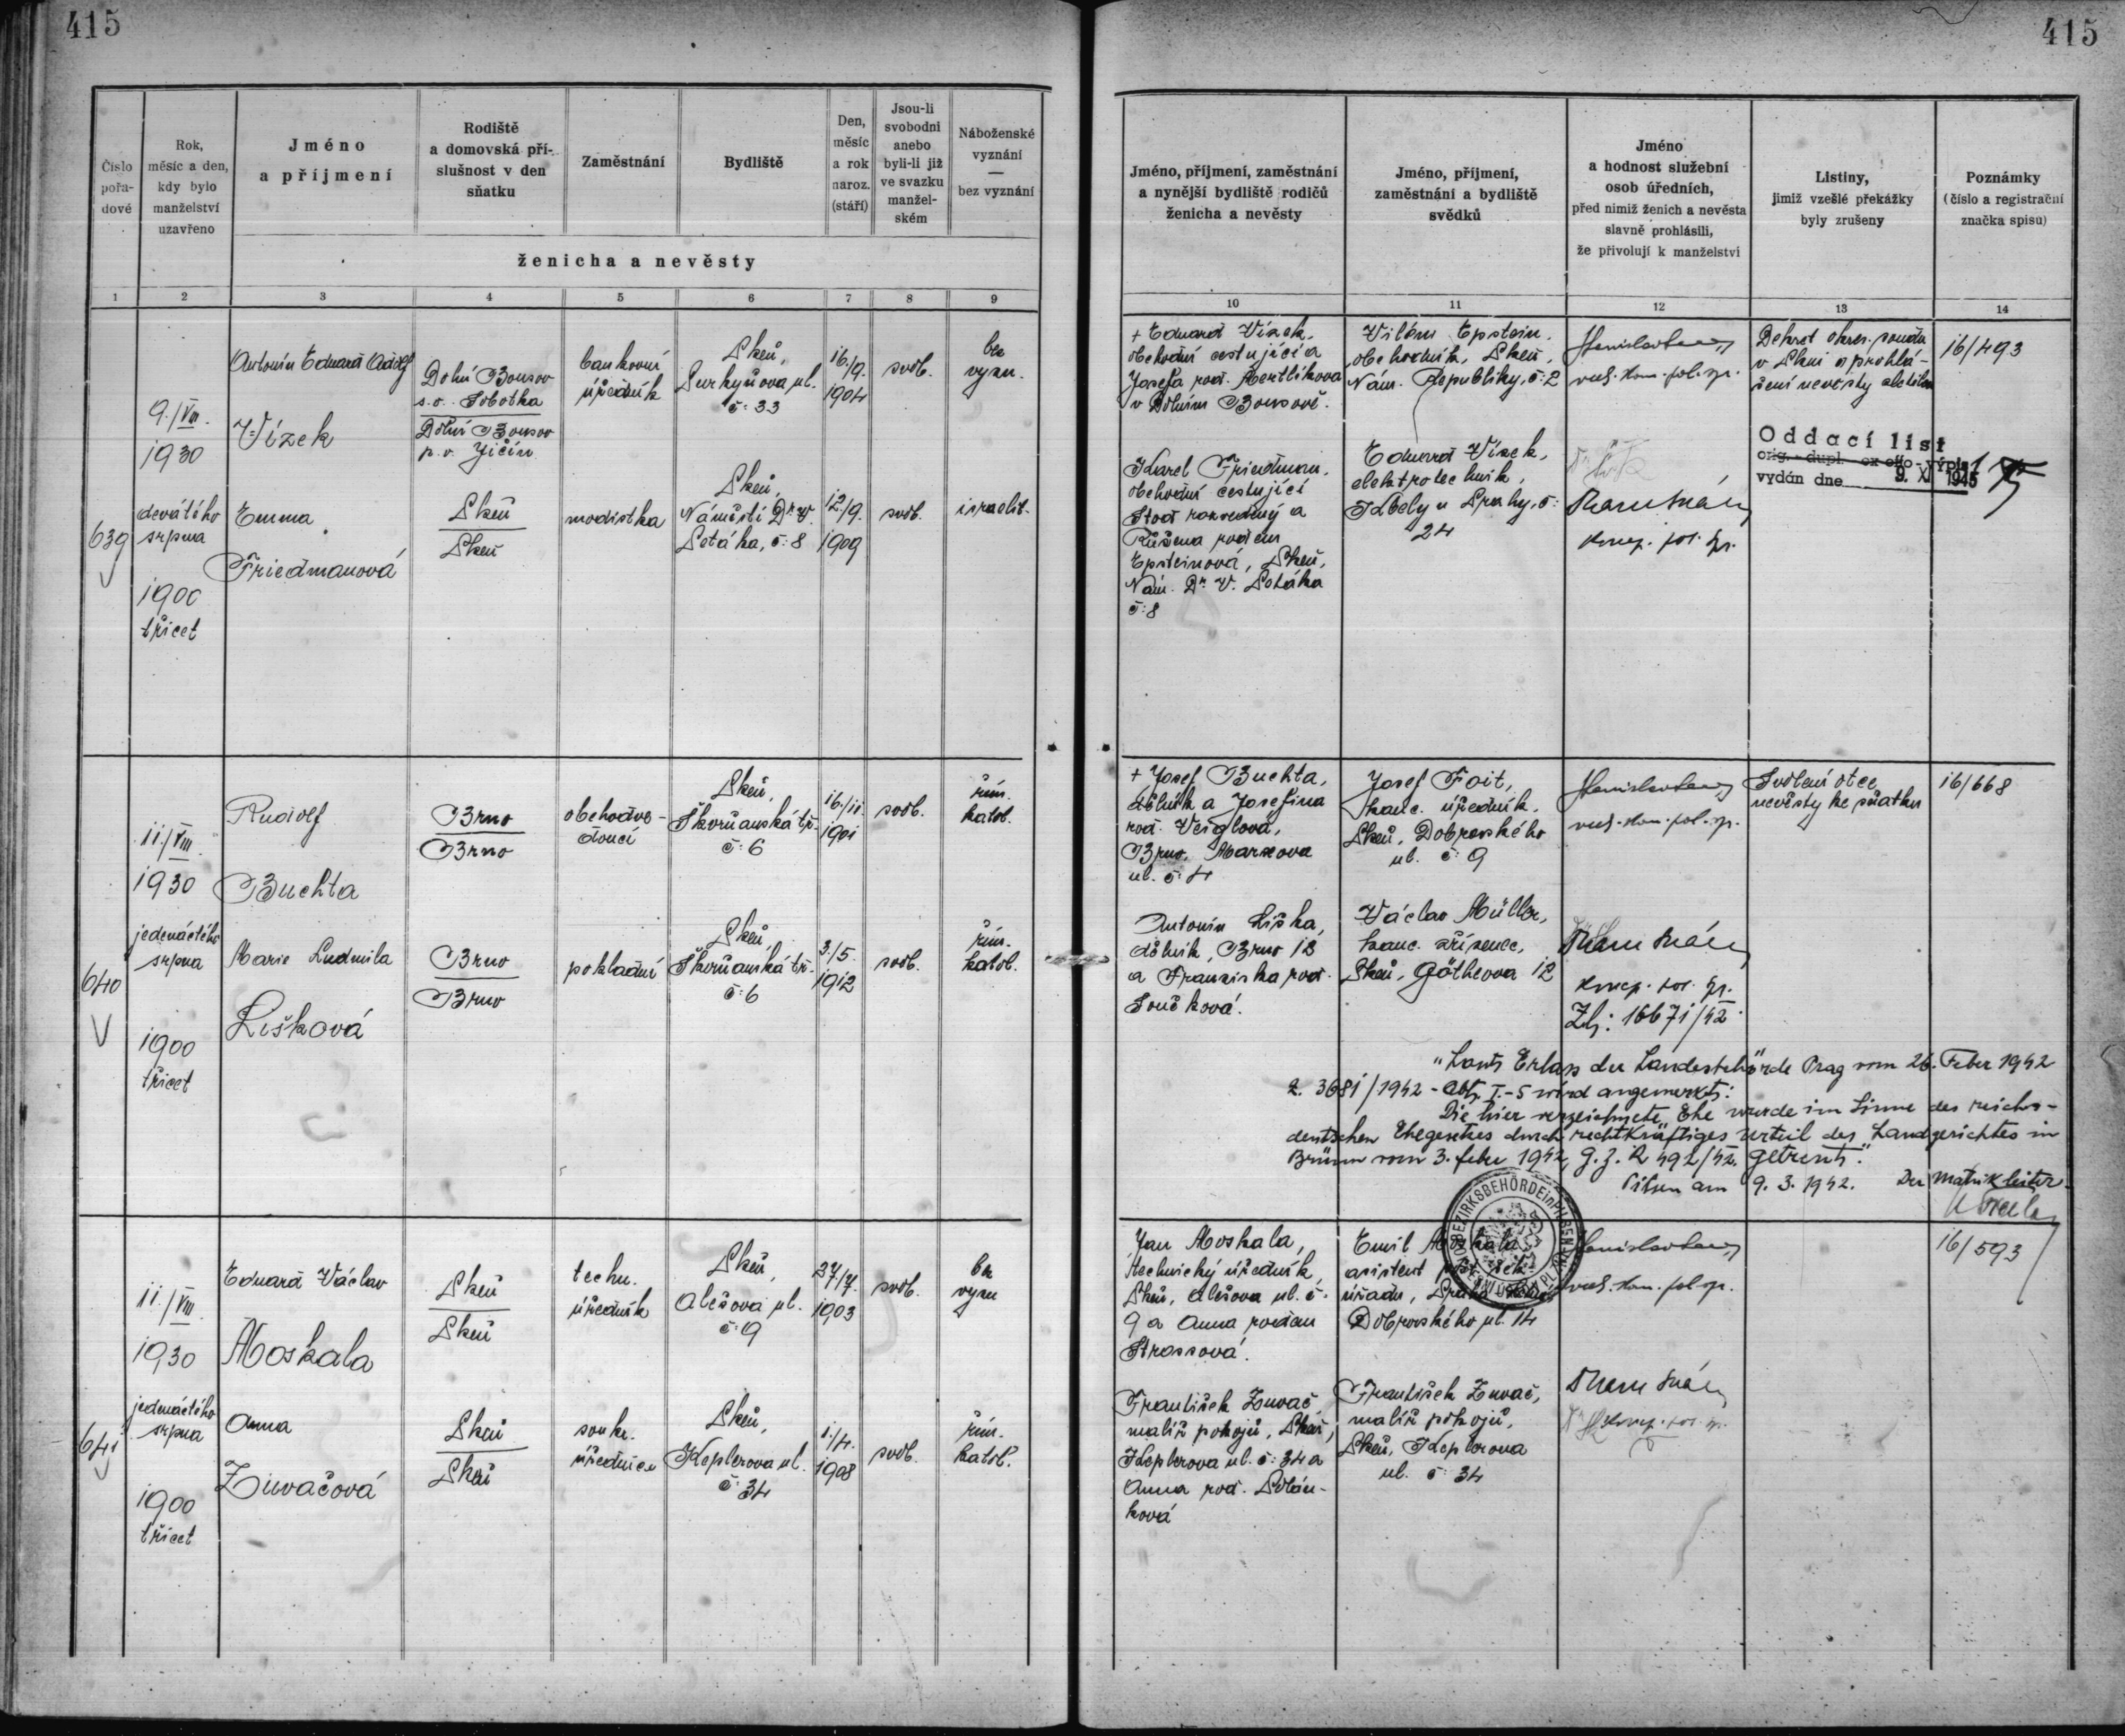 415
415
Číslo pořa- dové
Rok, měsíc a den, kdy bylo manželství uzavřeno
Jméno a příjmení
Rodiště a domovská pří- slušnost v den sňatku
Zaměstnání
Bydliště
Den, měsíc a rok naroz. (stáří)
Jsou-li svobodni anebo byli-li již ve svazku manžel- ském
Náboženské vyznání — bez vyznání
ženicha a nevěsty
Jméno, příjmení, zaměstnání a nynější bydliště rodičů ženicha a nevěsty
Jméno, příjmení, zaměstnání a bydliště svědků
Jméno a hodnost služební osob úředních, před nimiž ženich a nevěsta slavně prohlásili, že přivolují k manželství
Listiny, jimiž vzešlé překážky byly zrušeny
Poznámky (číslo a registrační značka spisu)
1 2 3 4 5 6 7 8 9 10 11 12 13 14
639
9./VIII.
1930
devátého
srpna
1900
třicet
Antonín Eduard Adolf
Vízek
Dolní Bousov
s.o. Sobotka
Dolní Bousov
p.o. Jičín
bankovní
úředník
Plzeň,
Purkyňova ul.
č: 33
16./9.
1904
svob.
bez
vyzn.
Emma
Friedmanová
Plzeň
Plzeň
modistka
Plzeň,
Náměstí Dr. V.
Petáka, č: 8
12/9.
1909
svob.
israelit.
+ Eduard Vízek,
obchodní cestující a
Josefa roz. Mertlíkova
v Dolním Bousově.
Karel Friedman,
obchodní cestující
Stod rozvedený a
Růžena rozen
Epsteinová, Plzeň,
Nám. Dr. V. Petáka
č: 8
Vilém Epstein,
obchodník, Plzeň,
Nám. Republiky, č: 2
Eduard Vízek,
elektrotechnik,
Kbely u Prahy, č:
24
Dekret okres. soudu
v Plzni o prohlá-
šení nevěsty zletilou
16/493
Oddací list
orig. - dupl. - ex offo - výpis
vydán dne 9. XI 1945
640
11./VIII.
1930
jedenáctého
srpna
1900
třicet
Rudolf
Buchta
Brno
Brno
obchodve-
doucí
Plzeň,
Skvrňanská tř.
č: 6
16./11.
1901
svob.
řím.
katol.
Marie Ludmila
Lišková
Brno
Brno
pokladní
Plzeň,
Skvrňanská tř.
č: 6
3./5.
1912
svob.
řím.
katol.
+ Josef Buchta,
dělník a Josefina
roz. Weiglova,
Brno, Marxova
ul. č: 4
Antonín Liška,
dělník, Brno 12
a Františka roz.
Součková.
Josef Foit,
kanc. úředník,
Plzeň, Dobrovského
ul. č: 9
Václav Müller,
kanc. zřízenec,
Plzeň, Götheova 12
Svolení otce
nevěsty ke sňatku
16/668
Zl: 16671/42.
"Lauts Erlass der Landesbehörde Prag vom 26. Feber 1942
Z. 3681/1942 - Abt. I.-5 wird angemerkt:
Die hier verzeichnete Ehe wurde im Sinne des reichs-
deutschen Ehegesetzes durch rechtkräftiges Urteil des Landgerichtes in
Brünn vom 3. feber 1942, G.Z. R 492/42. getrennt."
Pilsen am 9. 3. 1942. Der Matrikleiter
641
11./VIII.
1930
jedenáctého
srpna
1900
třicet
Eduard Václav
Moskala
Plzeň
Plzeň
techn.
úředník
Plzeň,
Alešova ul.
č: 9
27/7.
1903
svob.
bez
vyzn
Anna
Zuvačová
Plzeň
Plzeň
soukr.
úřednice
Plzeň,
Keplerova ul.
č: 34
1./4.
1908
svob.
řím.
katol.
Jan Moskala,
technický úředník,
Plzeň, Alešova ul. č:
9 a Anna rozen
Strossová.
František Zuvač,
malíř pokojů, Plzeň,
Keplerova ul. č: 34 a
Anna roz. Polán-
ková
Emil Moskala
asistent
úřadu, Praha
Dobrovského ul. 14
František Zuvač,
malíř pokojů,
Plzeň, Keplerova
ul. č: 34
16/593